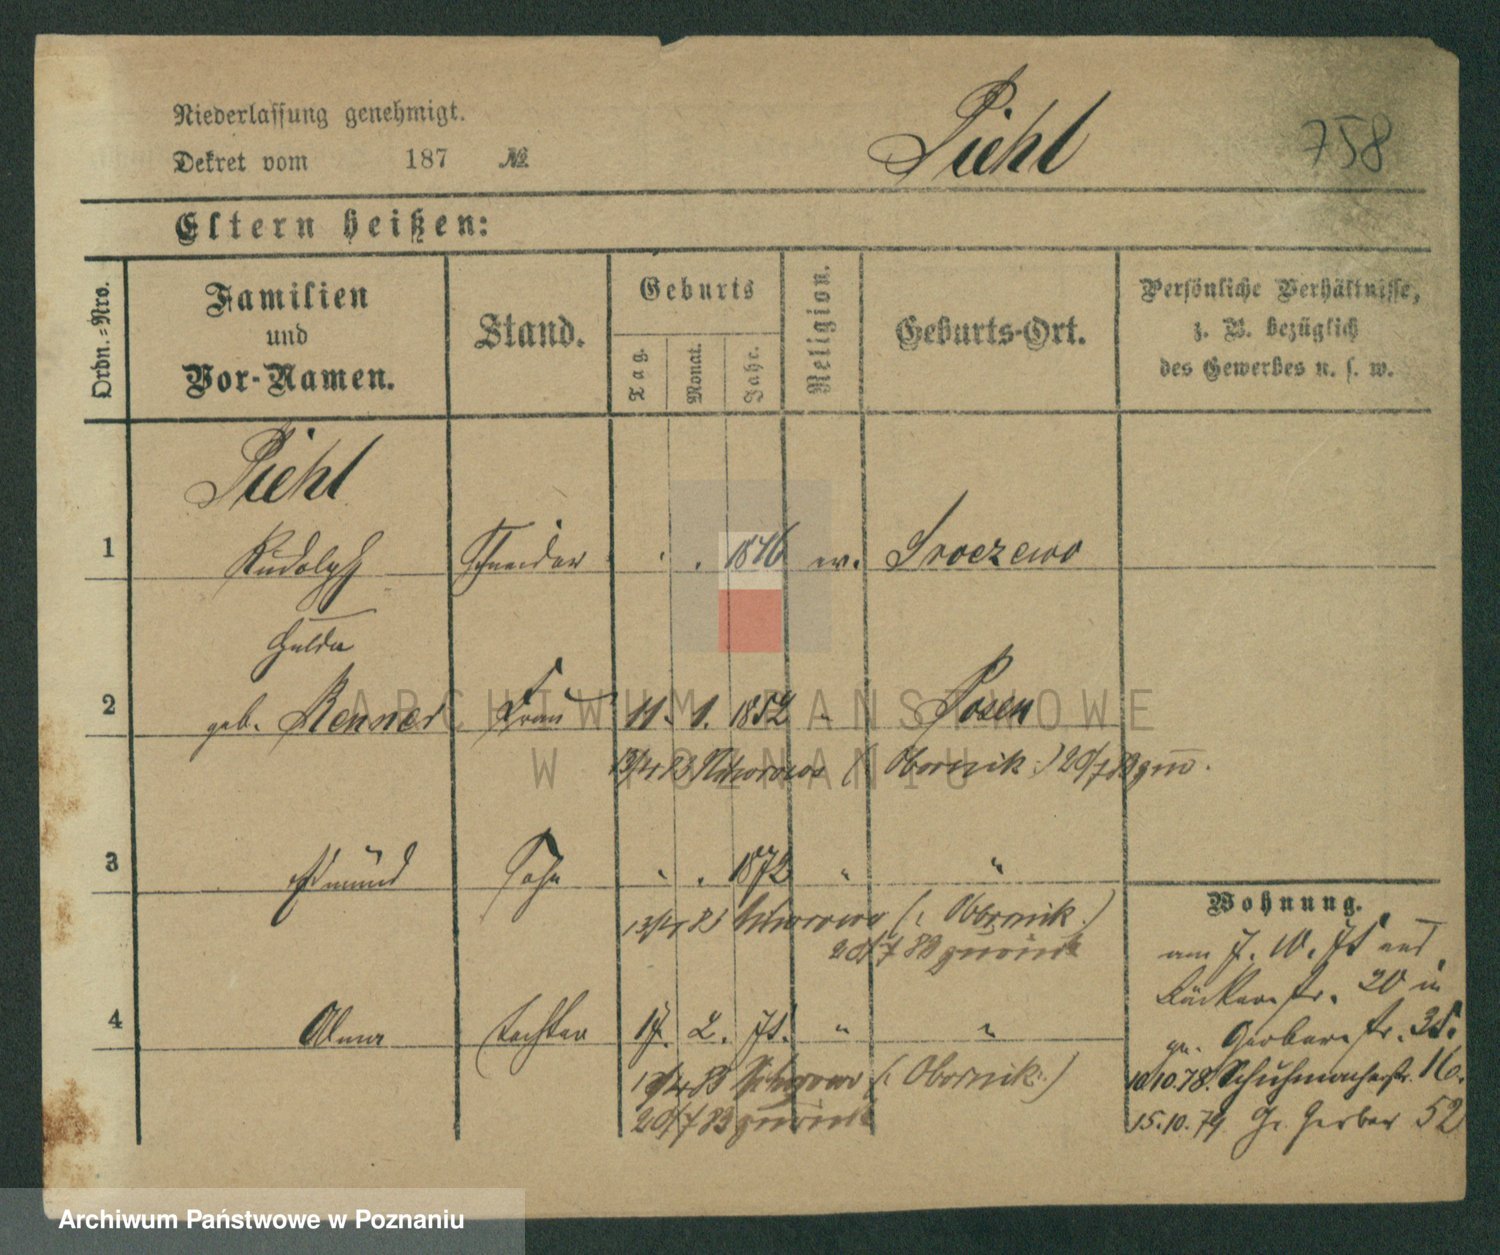 Niederlassung genehmigt.
Dekret vom 187 №
Piehl
758
Eltern heißen:
Ordn.-Nro.
Familien
und
Vor-Namen.
Stand.
Geburts
Tag.
Monat.
Jahr.
Religion.
Geburts-Ort.
Persönliche Verhältnisse,
z. B. bezüglich
des Gewerbes u. s. w.
Piehl
1 Rudolph Schneider 1846 ev. Sroczewo
Hulda
2 geb. Renner Frau 11. 1. 1852 " Posen
13/4 83 (Obornik) 20/7 83
3 Edmund Sohn 1872 " "
13/4 83 (Obornik)
20/7 83 zurück
4 Alma Tochter 17. 2. 75. " "
13/4 83 (Obornik)
20/7 83 zurück
Wohnung.
am 7. 10. 75
Bäckerstr. 20 in
gr. Gerberstr. 35.
10.10.78. Schuhmacherstr. 16.
15.10.79. Gr. Gerber 52
ARCHIWUM PAŃSTWOWE
W POZNANIU
Archiwum Państwowe w Poznaniu